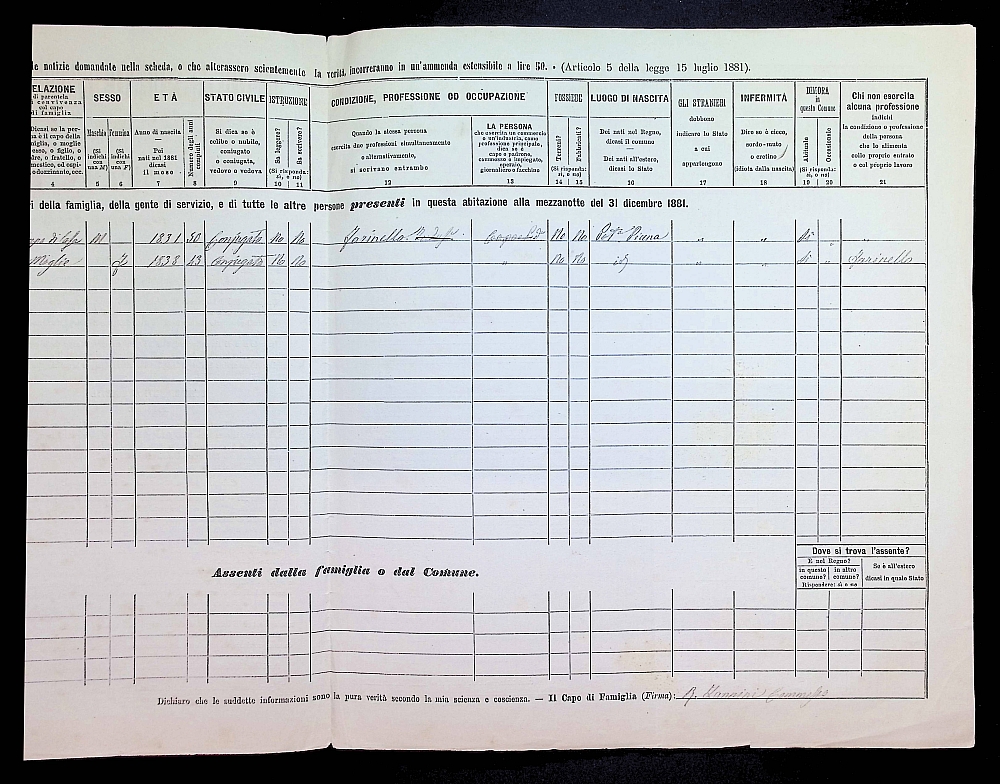 le notizie domandate nella scheda, o che alterassero scientemente la verità, incorreranno in un'ammenda estensibile a lire 50. - (Articolo 5 della legge 15 luglio 1881).
ELAZIONE
di parentela
convivenza
col capo
di famiglia
Dicasi se la per-
4
SESSO
Maschio
(Si
indichi
con
una M)
5
Femmina
(Si
indichi
con
una F)
6
ETÀ
Anno di nascita
—
Pei
nati nel 1881
dicasi
il mese
7
Numero degli anni
compiuti
8
STATO CIVILE
Si dica se è
celibe o nubile,
coniugato
o coniugata,
vedovo o vedova
9
ISTRUZIONE
Sa leggere?
Sa scrivere?
(Si risponda:
sì, o no)
10
11
CONDIZIONE, PROFESSIONE OD OCCUPAZIONE
Quando la stessa persona
esercita due professioni simultaneamente
o alternativamente,
si scrivano entrambe
12
LA PERSONA
che esercita un commercio
o un'industria, come
professione principale,
dica se è
capo o padrone,
commesso o impiegato,
operaio,
giornaliero o facchino
13
POSSIEDE
Terreni?
Fabbricati?
(Si risponda:
sì, o no)
14
15
LUOGO DI NASCITA
Dei nati nel Regno,
dicasi il comune
—
Dei nati all'estero,
dicasi lo Stato
16
GLI STRANIERI
debbono
indicare lo Stato
a cui
appartengono
17
INFERMITÀ
Dire se è cieco,
sordo-muto
o cretino
(idiota dalla nascita)
18
DIMORA
in
questo Comune
Abituale
Occasionale
(Si risponda:
sì, o no)
19
20
Chi non esercita
alcuna professione
indichi
la condizione o professione
della persona
che lo alimenta
colle proprie entrate
o col proprio lavoro
21
ri della famiglia, della gente di servizio, e di tutte le altre persone presenti in questa abitazione alla mezzanotte del 31 dicembre 1881.
di Casa M 1831 50 Conjugato No No No No Riena " " Si "
Moglie F 1838 43 Conjugata No No " No No id " " Si "
Assenti dalla famiglia o dal Comune.
Dove si trova l'assente?
È nel Regno?
in questo
comune?
in altro
comune?
Rispondere: sì o no
Se è all'estero
dicasi in quale Stato
Dichiaro che le suddette informazioni sono la pura verità secondo la mia scienza e coscienza. — Il Capo di Famiglia (Firma):